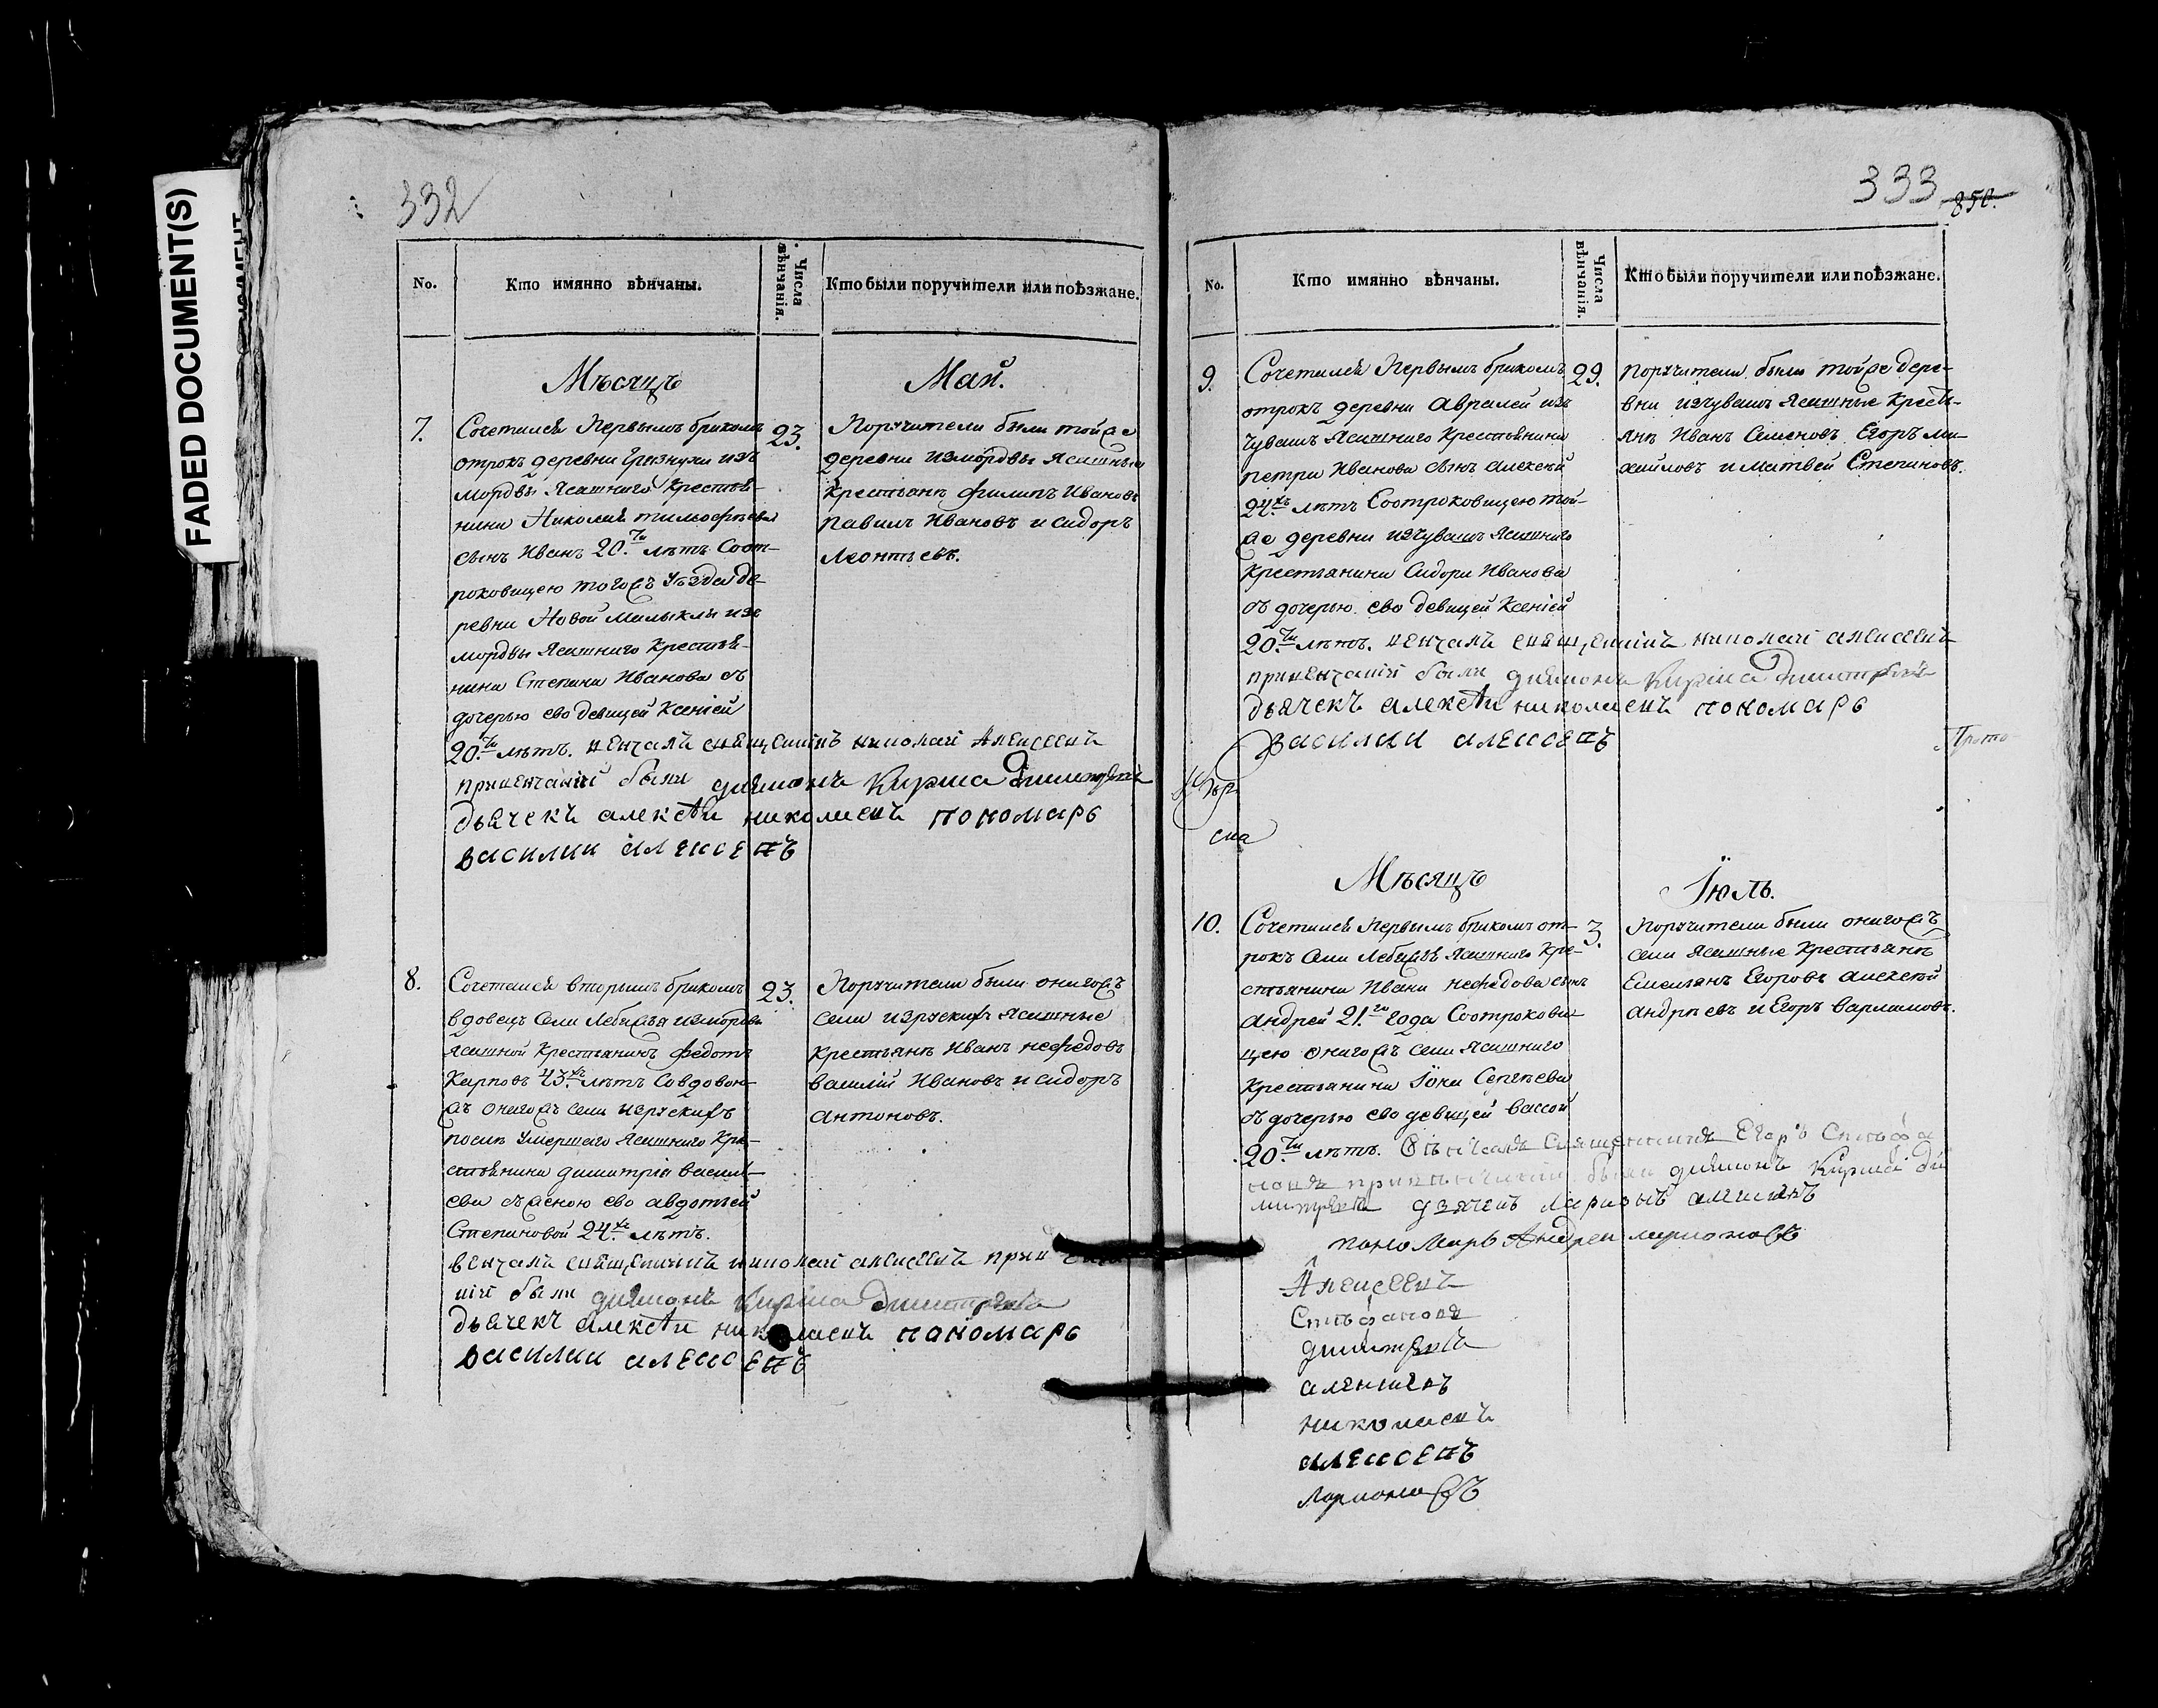 FADED DOCUMENT(S)
332
No.
Кто имянно вѣнчаны.
Числа вѣнчанія.
Кто были поручители или поѣзжане.
Мѣсяцъ
Май.
7.
Сочетался Первымъ бракомъ
отрокъ деревни Грязнухи изъ
мордвы Ясашнаго Крестья-
нина Николая тимофѣева
сынъ Иванъ 20.ти лѣтъ Соот-
роковицею тогожъ Уѣзда де-
ревни Новой Малыклы изъ
мордвы Ясашнаго Крестья-
нина Степана Иванова съ
дочерью ево девицей Ксеніей
20.ти лѣтъ. венчалъ священникъ николай Алексеевъ
привенчаніи были диаконъ Кирила Димитріевъ
дьячекъ алексѣи николаевъ пономарь
василии алексеевъ
23.
Поручители были тойже
деревни измордвы Ясашныя
Крестьянѣ филипъ Ивановъ
павилъ Ивановъ и сидоръ
Леонтьевъ.
8.
Сочетался вторымъ бракомъ
вдовецъ Села Лебяжья измордвы
ясашной Крестьянинъ федотъ
Карповъ 43.хъ лѣтъ Совдовою
жъ онагожъ села изрускихъ
послѣ Умершаго Ясашнаго Кре-
стьянина димитрія василь-
ева съженою ево авдотьей
Степановой 24.хъ лѣтъ.
венчалъ священникъ николаи алексеевъ
ніи были диаконъ Кирила Димитріевъ
дьячекъ алексѣи николаевъ пономарь
василии алексеевъ
23.
Поручители были онагожъ
села изрускихъ Ясашные
Крестьянѣ Иванъ нефедовъ
василій Ивановъ и сидоръ
антоновъ.
333 850.
No.
Кто имянно вѣнчаны.
Числа вѣнчанія.
Кто были поручители или поѣзжане.
9.
Сочетался Первымъ бракомъ
отрокъ деревни Авралей изъ
Чувашъ Ясашнаго Крестьянина
петра Иванова сынъ алексѣй
24.хъ лѣтъ Соотроковицею той-
же деревни изчувашъ Ясашнаго
Крестьянина Сидора Иванова
съ дочерью ево девицей Ксеніей
20.ти лѣтъ. венчалъ священникъ николаі алексеевъ
привенчаніи были диаконъ Кирила Димитріевъ
дьячекъ алексѣи николаевъ пономарь
василии алексеевъ
29.
Поручители были тойже дере-
вни изчувашъ Ясашные Кресть-
янѣ Иванъ Семеновъ Егоръ ми-
хайловъ и матвей Степановъ.
Мѣсяцъ
Іюль.
10.
Сочетался Первымъ бракомъ от-
рокъ Села Лебяжья Ясашнаго Кре-
стьянина Ивана нефедова сынъ
андрей 21.го года Соотрокови-
цею онагожъ села Ясашнаго
Крестьянина Іоны Сергѣева
съ дочерью ево девицей вассой
20.ти лѣтъ. Вѣнчалъ Священникъ Егоръ Стѣфа
новъ привѣнчаніи были диаконъ Кирила ди
митріевъ дьячекъ Ларионъ алексиевъ
пономарь Андреи ларионовъ
3.
Поручители были онагожъ
села Ясашные Крестьянѣ
Емельянъ Егоровъ алексѣй
андрѣевъ и Егоръ варламовъ.
Алексеевъ
Стѣфановъ
димитріевъ
алексиевъ
николаевъ
алексеевъ
Ларионовъ